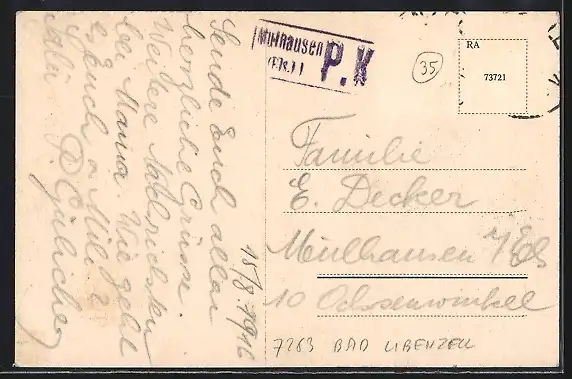 Sende Euch allen
herzliche Grüsse.
Weitere Nachrichten
bei Mama. Wie geht
es Euch u. Mili?
Salu
15/8. 1916
Mülhausen
(Els.)
P.K
35
RA
73721
Familie
E. Decker
Mülhausen i/Els
10 Ochsenwinkel
7263 BAD LIBENZELL